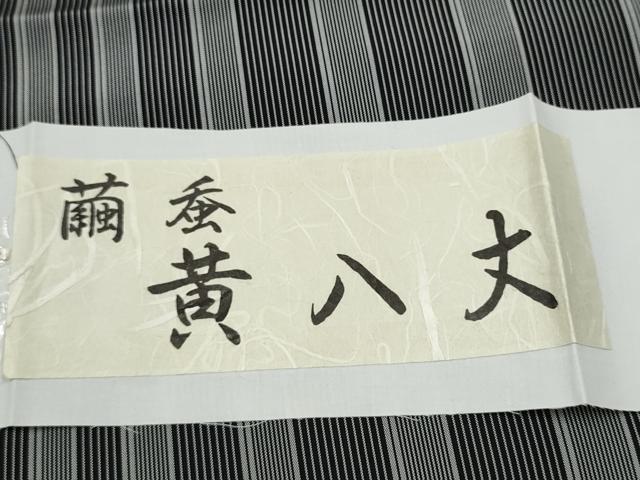 繭蚕
黄八丈